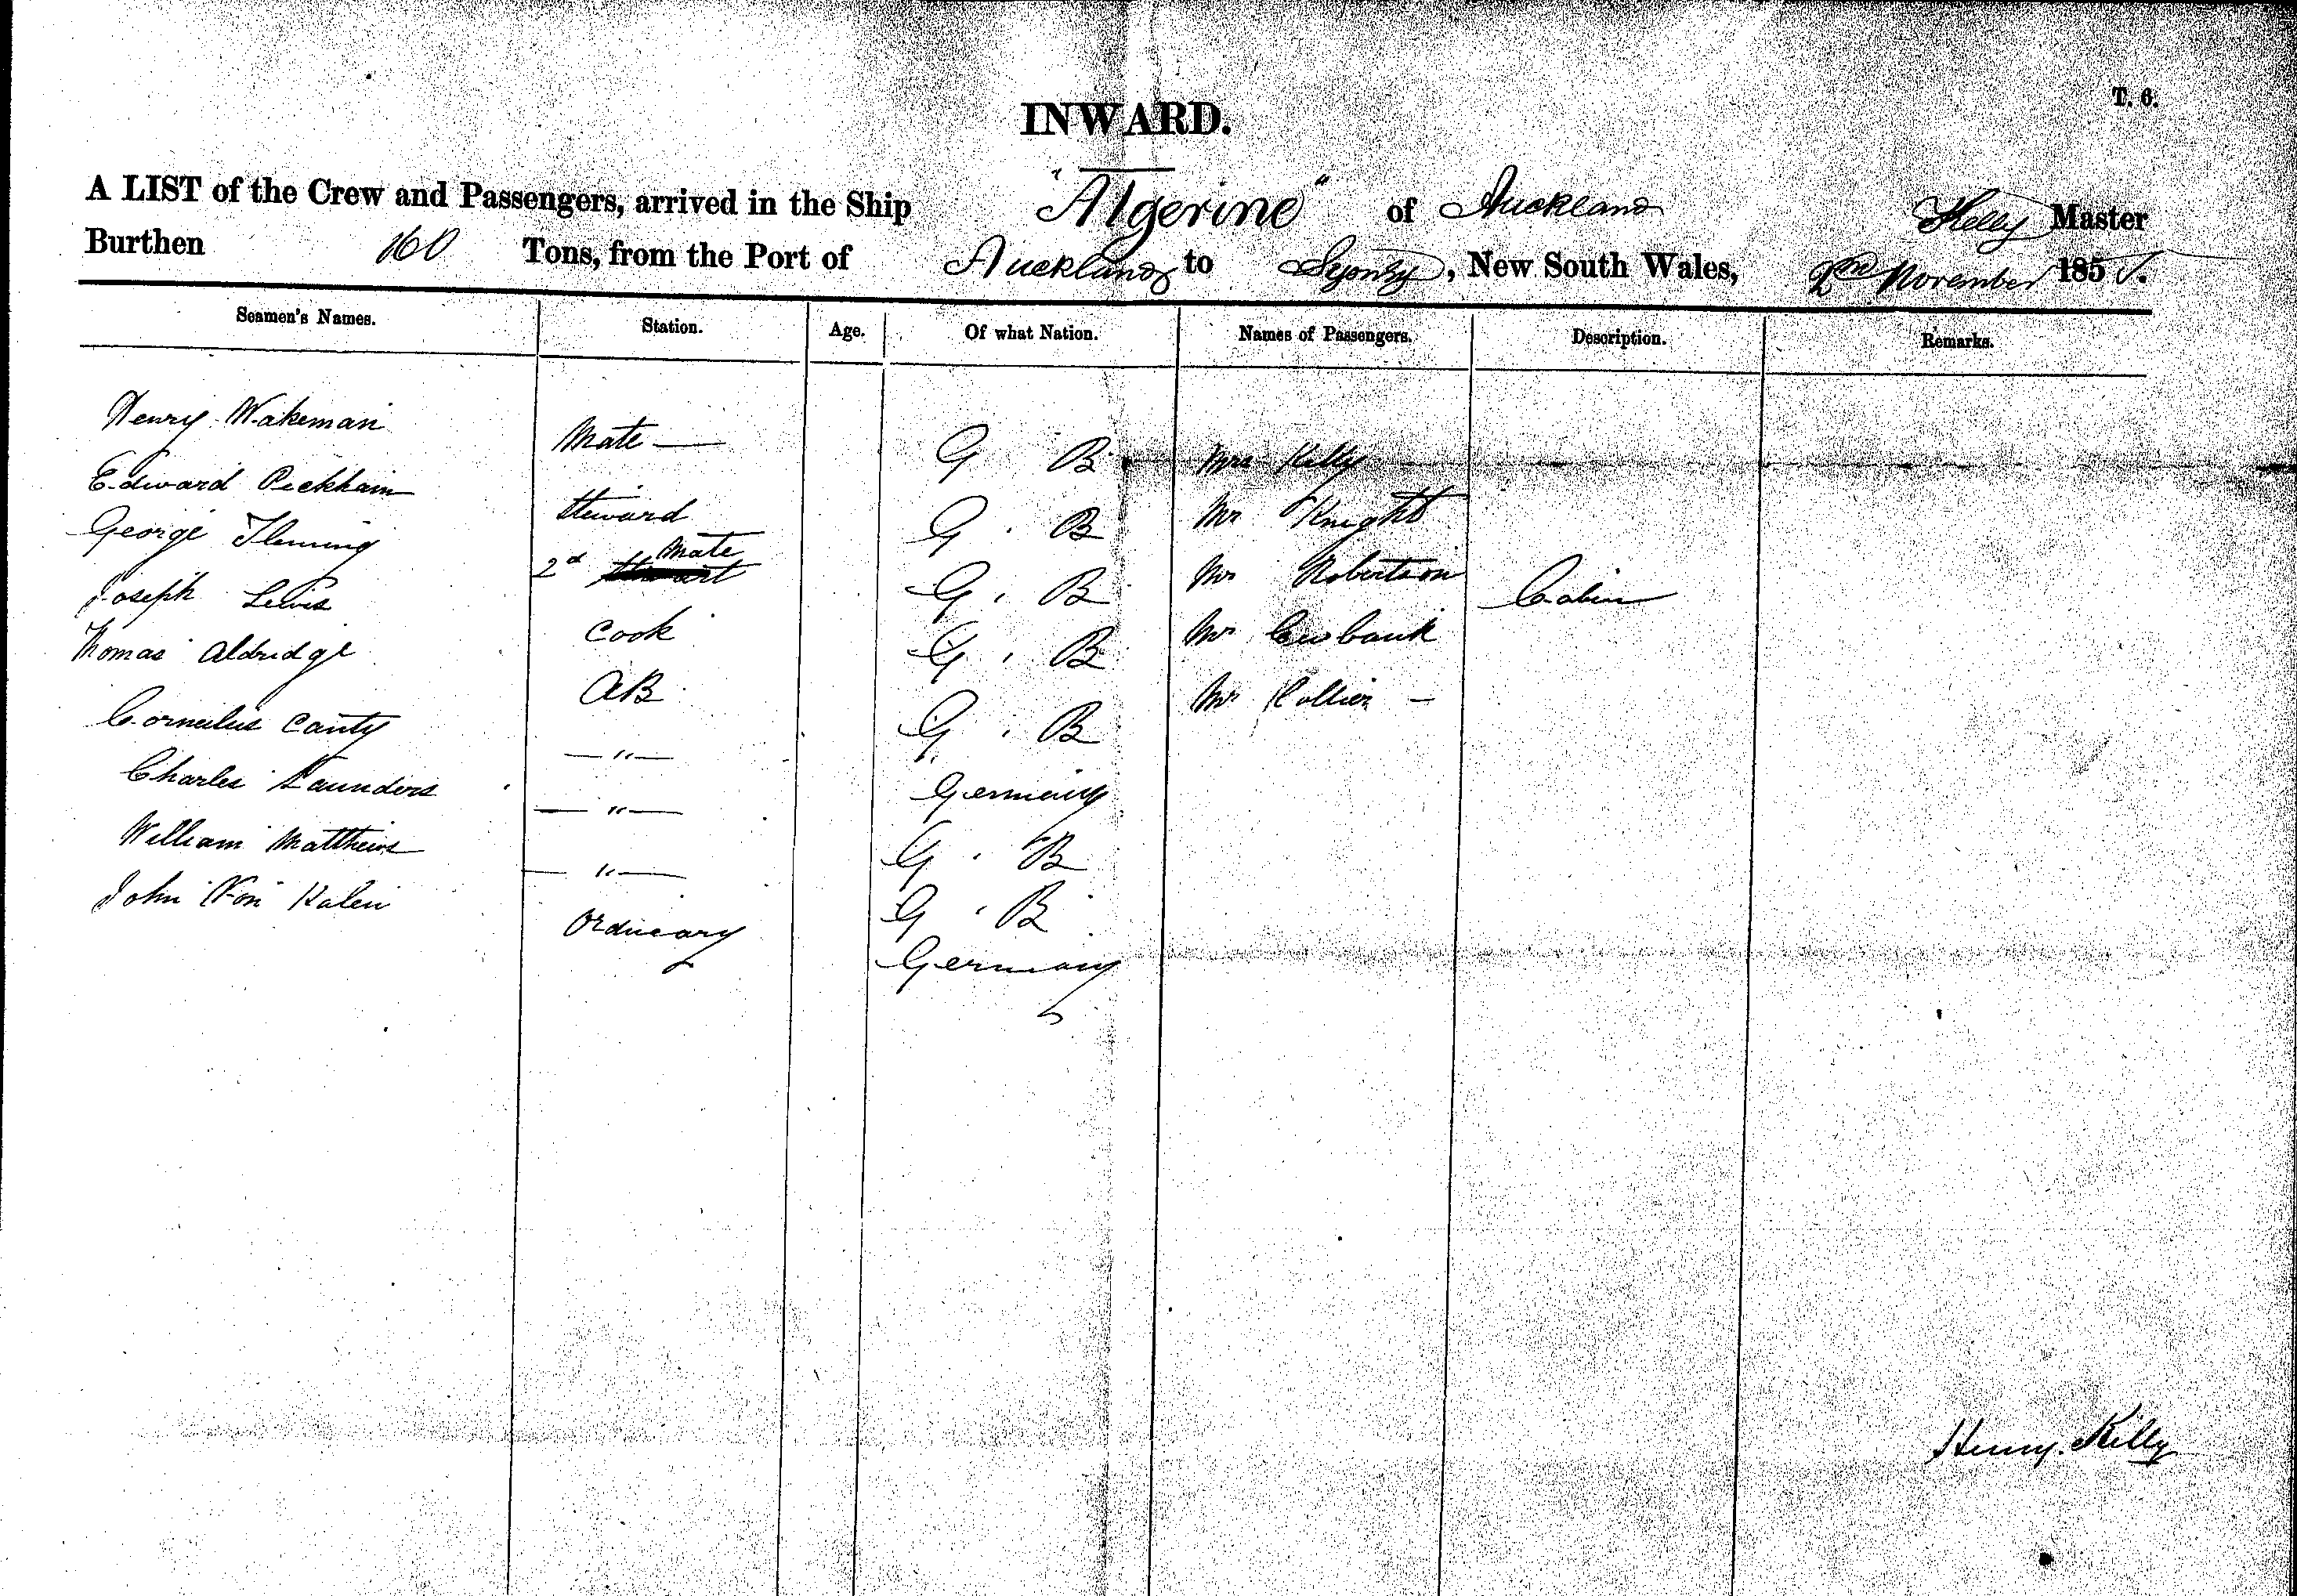 T. 6.
INWARD.
A LIST of the Crew and Passengers, arrived in the Ship "Algerine" of Auckland Kelly Master
Burthen 160 Tons, from the Port of Auckland to Sydney, New South Wales, 2nd November 185
Seamen's Names. Station. Age. Of what Nation. Names of Passengers. Description. Remarks.
Henry Wakeman Mate — G B Mrs Kelly
Edward Peckham Steward G. B Mr Knight
George Fleming 2d Mate G. B Mr Robertson Cabin
Joseph Lewis Cook G. B Mr Ewbank
Thomas Aldridge AB G. B Mr Collier —
Cornelius Canty — " — Germany
Charles Saunders — " — G. B
William Matthews — " — G. B
John Von Ordineary Germany
Henry Kelly